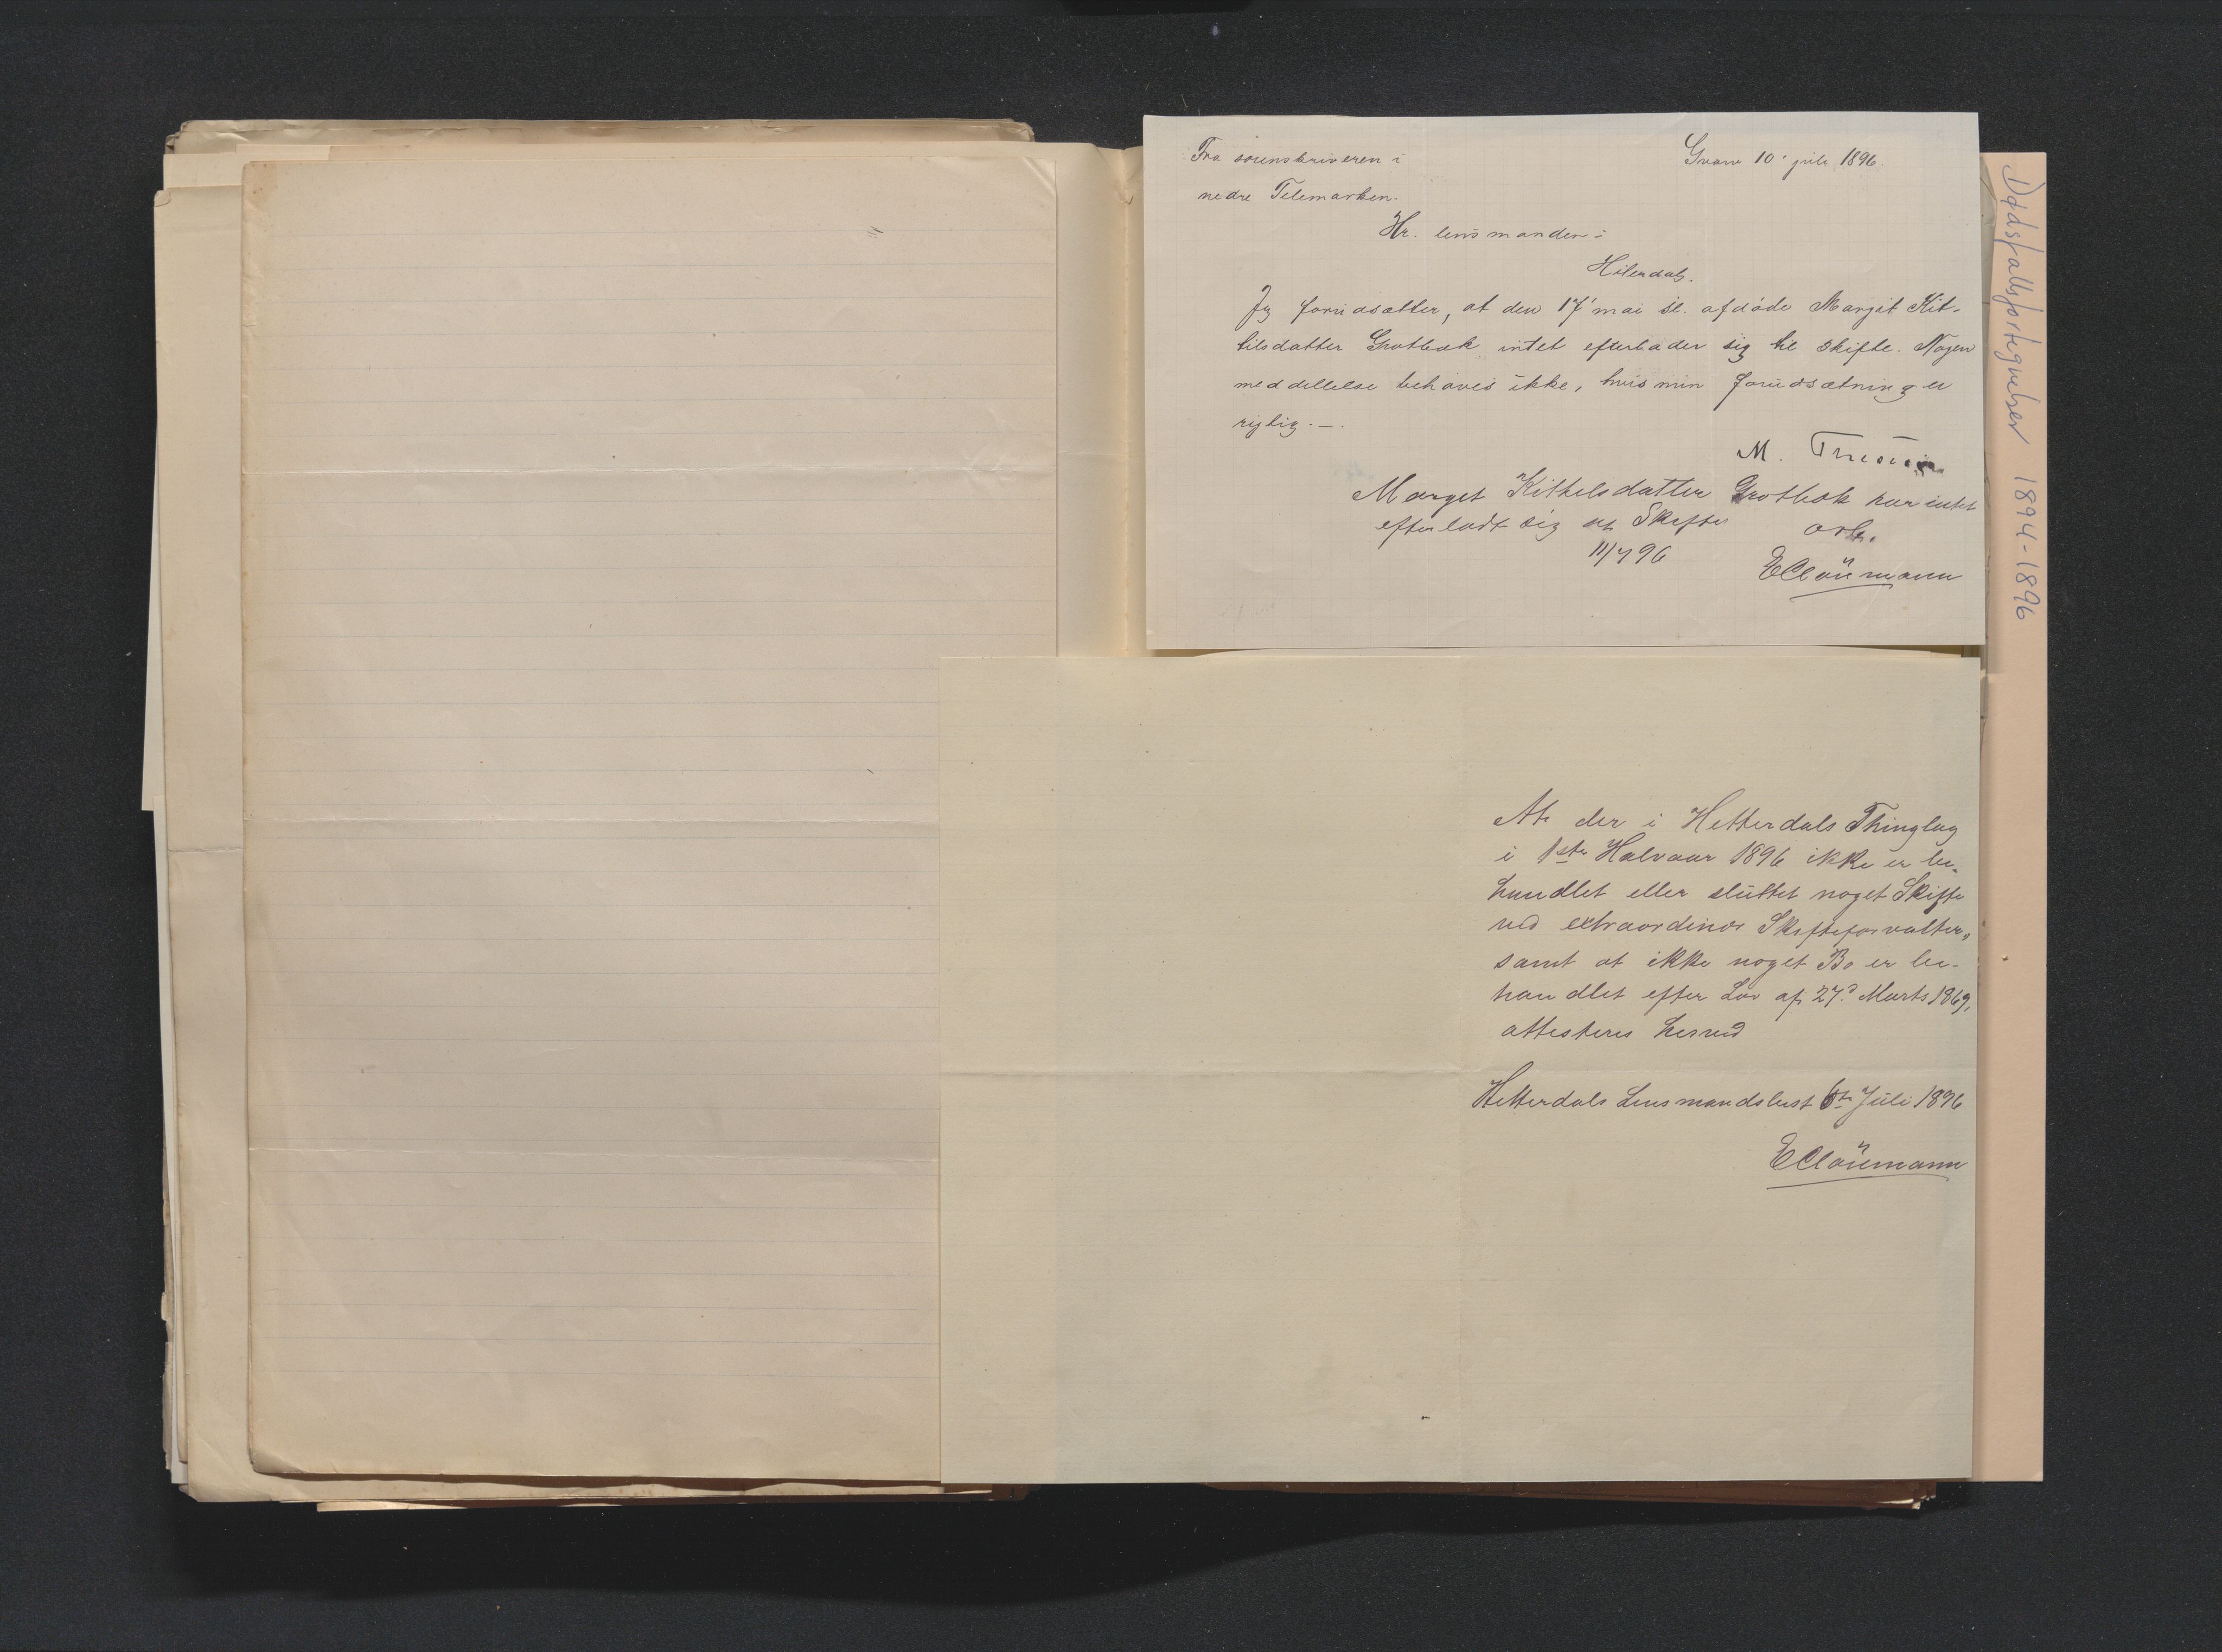 Fra sorenskriveren i
nedre Telemarken.
Gvarv 10' juli 1896.
Hr. lensmanden i
Hiterdal.
Jeg forudsætter, at den 17' mai sl. afdøde Margit Kit-
tilsdatter Grotbæk intet efterlader sig til skifte. Nogen
meddellelse behøves ikke, hvis min forudsætning er
rigtig. —.
M.
Marget Kithelsdatter Grotbæk har intet
efterladt sig at Skifte
11/7 96
ærb.
EClaümann
At der i Hetterdals Thinglag
i 1ste Halvaar 1896 ikke er be-
handlet eller sluttet noget Skifte
ved extraordinær Skifteforvalter,
samt at ikke noget Bo er be-
handlet efter Lov af 27d Marts 1869,
attesteres herved
Hetterdals Lensmandsbest 6te Juli 1896
EClaümann
Dødsfallsfortegnelser 1894-1896